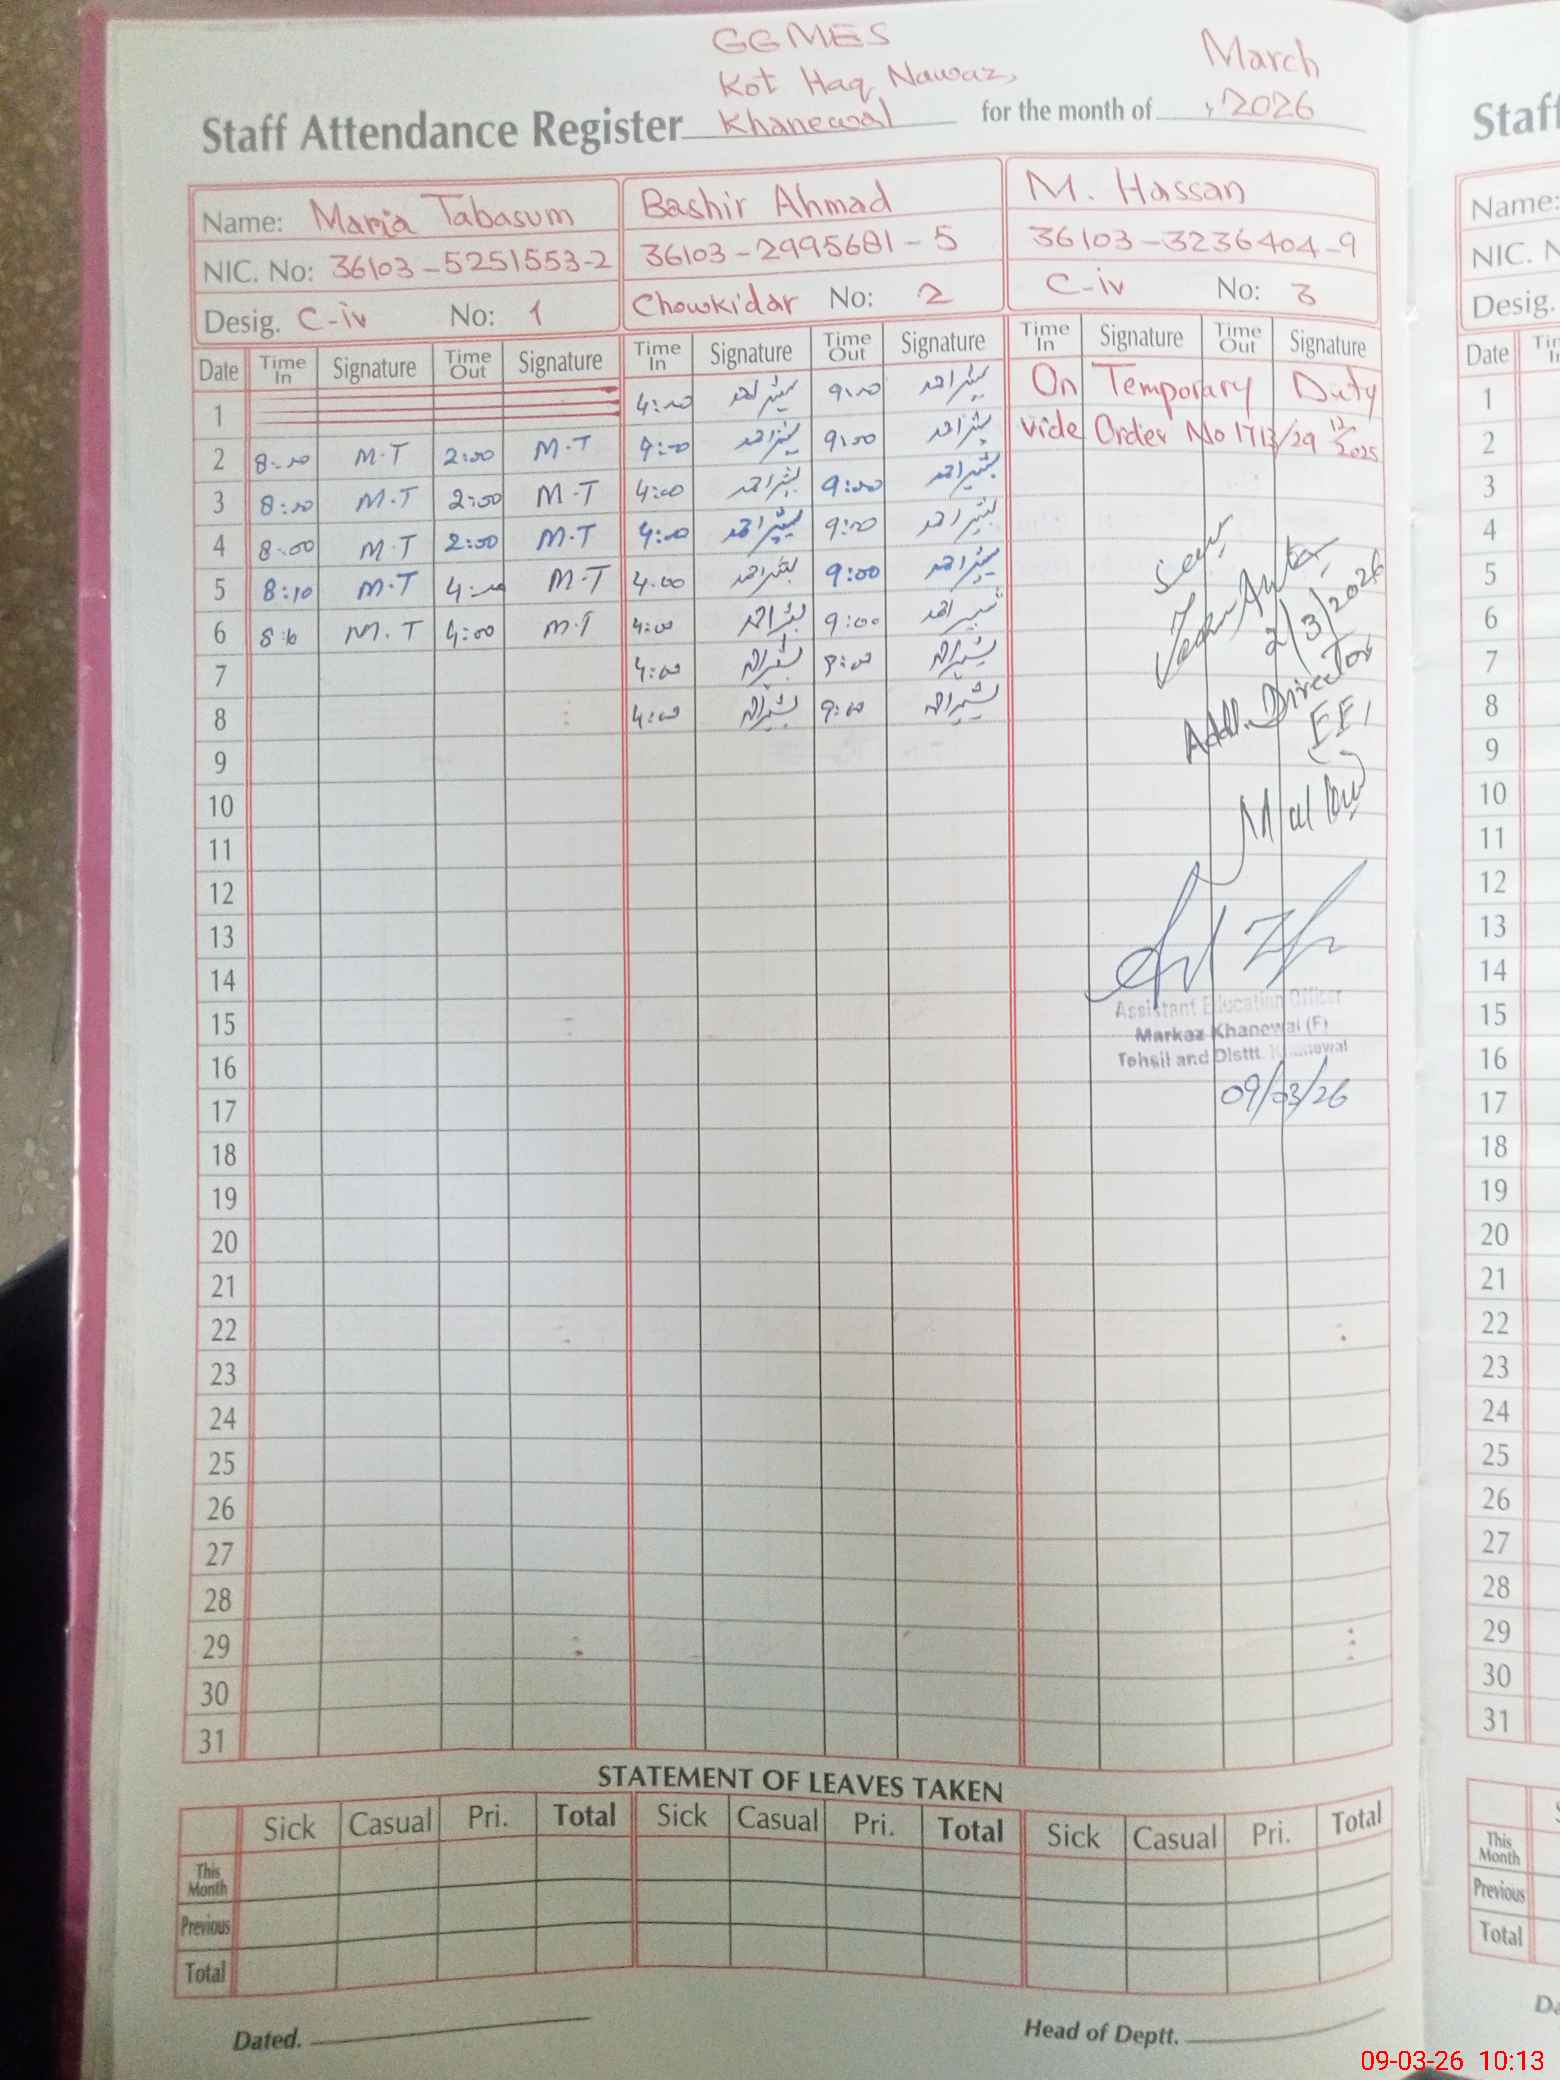 GGMES
Kot Haq Nawaz,
Khanewal
March
, 2026
Staff Attendance Register
for the month of
Name: Maria Tabasum
Bashir Ahmad
M. Hassan
NIC. No: 36103-5251553-2
36103-2995681-5
36103-3236404-9
Desig. C-iv No: 1
Chowkidar No: 2
C-iv No: 3
Date Time In Signature Time Out Signature Time In Signature Time Out Signature Time In Signature Time Out Signature
On Temporary Duty
vide Order No 1713/29 12 2025
1 4:00 بشیراحمد 9:00 بشیراحمد
2 8:00 M.T 2:00 M.T 4:00 بشیراحمد 9:00 بشیراحمد
3 8:00 M.T 2:00 M.T 4:00 بشیراحمد 9:00 بشیراحمد
4 8:00 M.T 2:00 M.T 4:00 بشیراحمد 9:00 بشیراحمد
5 8:10 M.T 4:00 M.T 4:00 بشیراحمد 9:00 بشیراحمد
6 M.T 4:00 M.T 4:00 بشیراحمد 9:00 بشیراحمد
7 4:00 بشیراحمد 9:00 بشیراحمد
8 4:00 بشیراحمد 9:00 بشیراحمد
9
10
11
12
13
14
15
16
17
18
19
20
21
22
23
24
25
26
27
28
29
30
31
Seen
2/3/2026
Addl. Director
Assistant Education Officer
Markaz Khanewal (F)
Tehsil and Disttt. Khanewal
09/03/26
STATEMENT OF LEAVES TAKEN
Sick Casual Pri. Total Sick Casual Pri. Total Sick Casual Pri. Total
This Month
Previous
Total
Dated.
Head of Deptt.
Staff
Name:
NIC. N
Desig.
Date
1
2
3
4
5
6
7
8
9
10
11
12
13
14
15
16
17
18
19
20
21
22
23
24
25
26
27
28
29
30
31
This Month
Previous
Total
09-03-26 10:13